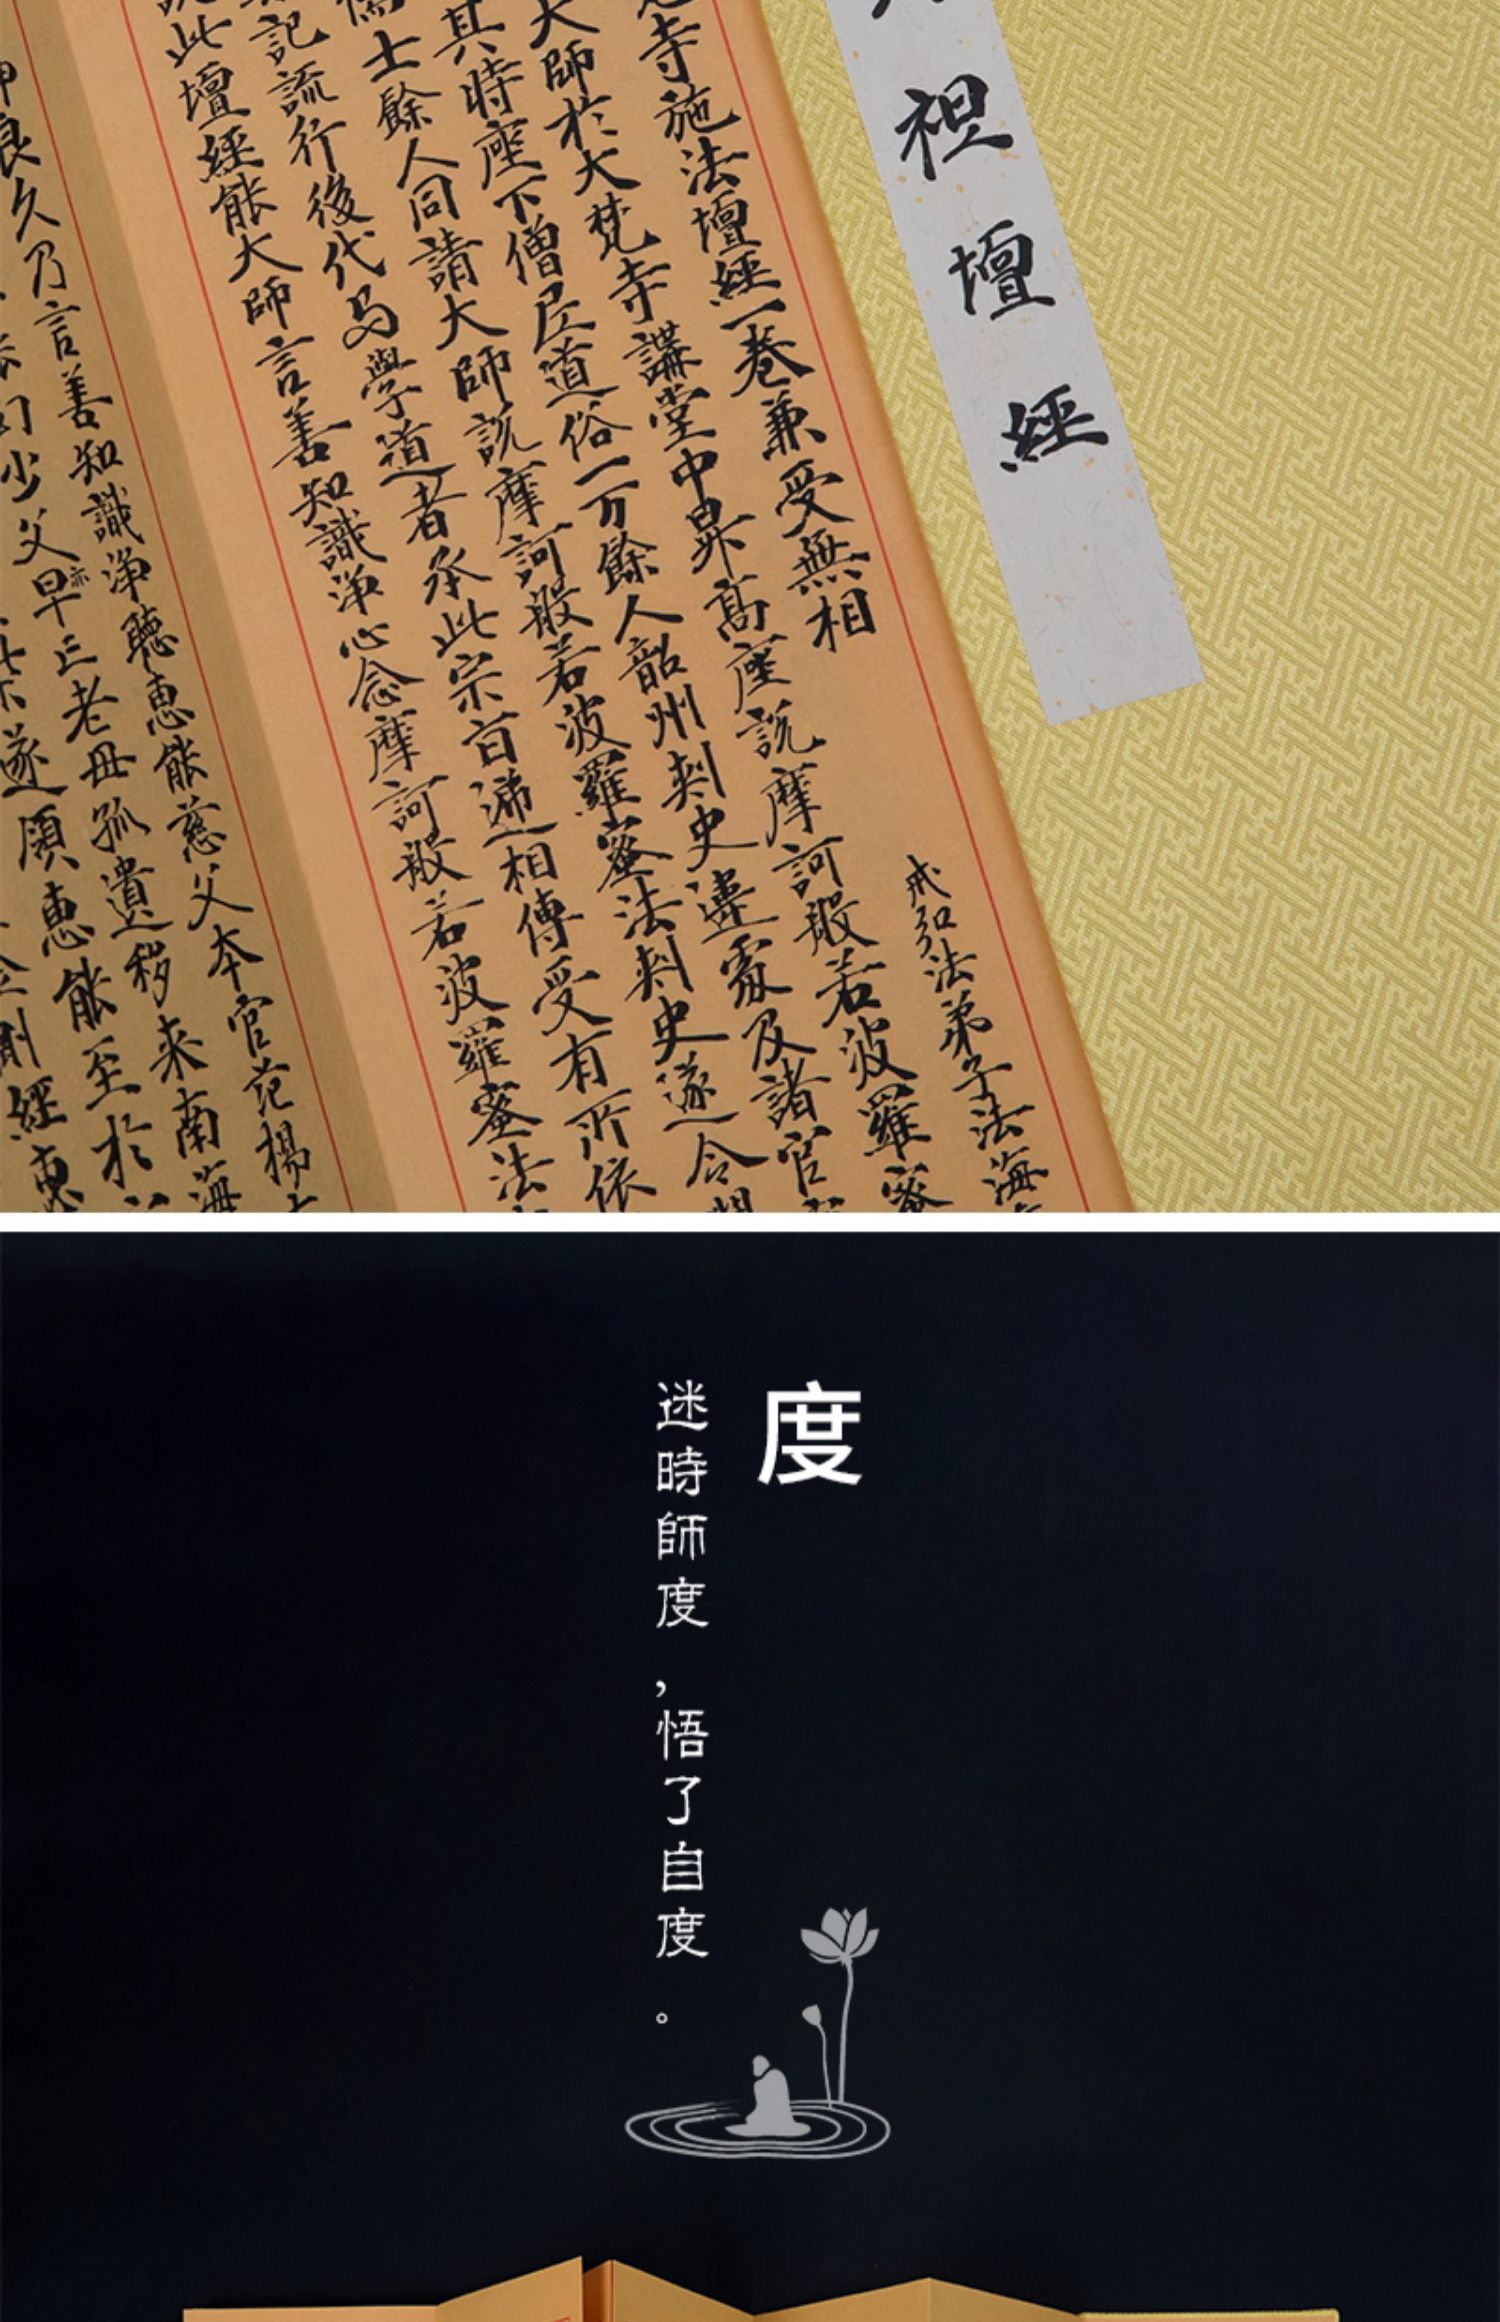 祖壇經
寺施法壇經一卷兼受無相
戒弘法弟子法海
大師於大梵寺講堂中昇高座說摩訶般若波羅蜜
其時座下僧尼道俗一万餘人韶州刺史違處及諸官
士餘人同請大師說摩訶般若波羅蜜法刺史遂令
記流行後代与學道者承此宗旨遞相傳受有所依
此壇經能大師言善知識淨心念摩訶般若波羅蜜法
良久乃言善知識淨聽惠能慈父本官范陽
少父早亦亡老母孤遺移来南海
遂領惠能至於
經惠
度
迷時師度,悟了自度。